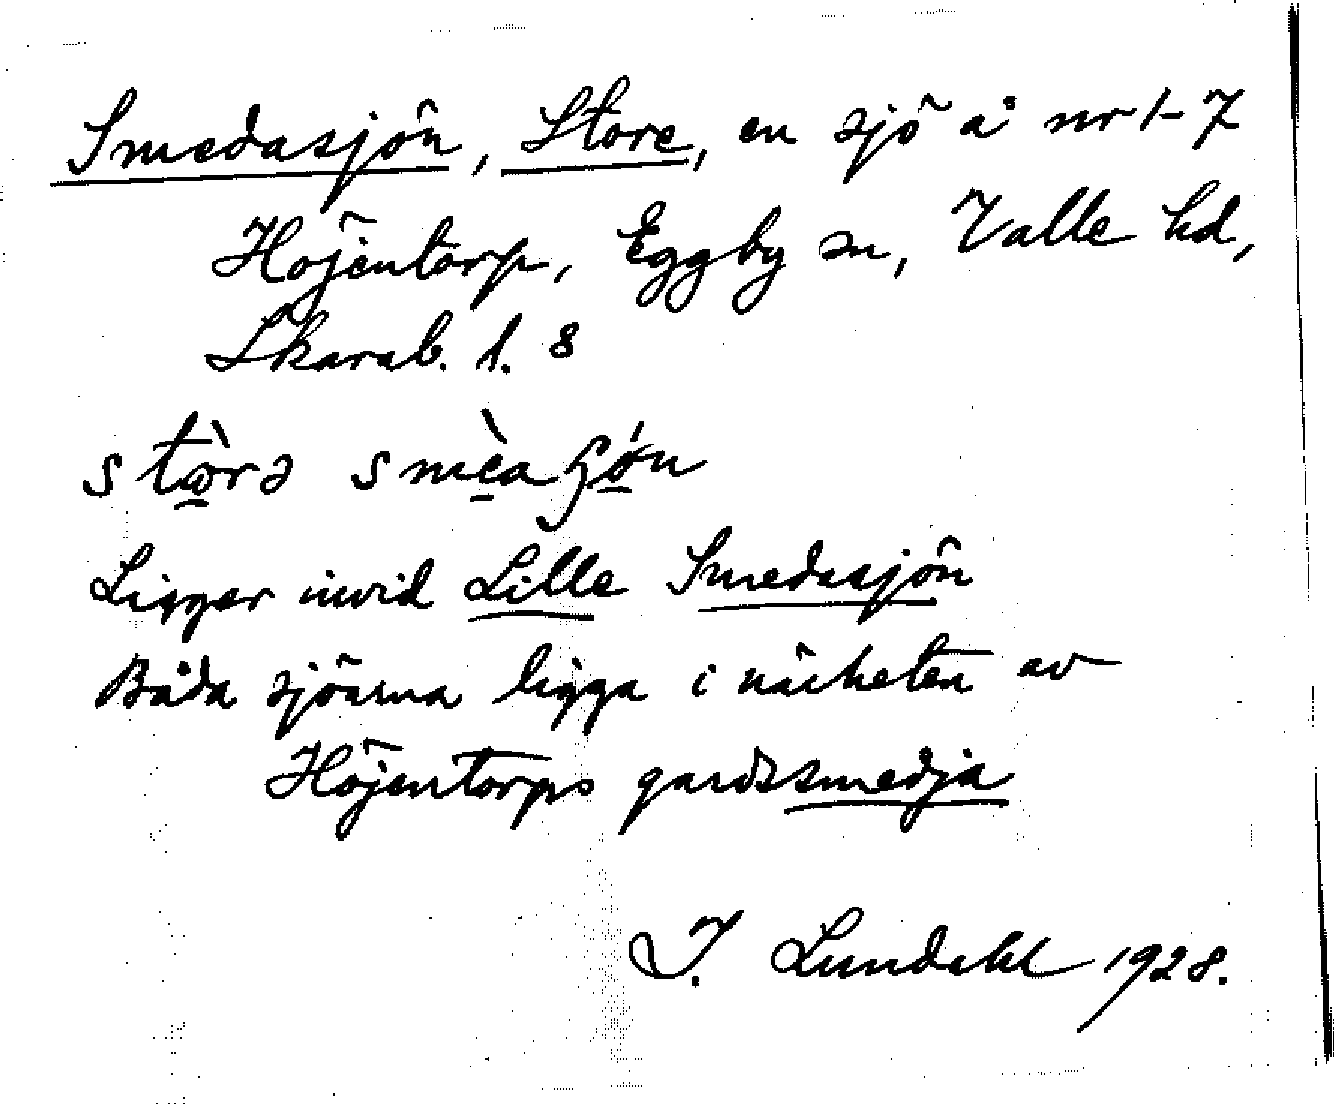 Smedasjön, Store, en sjö å nr 1-7
Höjentorp, Eggby sn, Valle hd,
Skarab. l. 8
Ligger invid Lille Smedasjön
Båda sjöarna ligga i närheten av
Höjentorps gardssmedja
I. Lundahl 1928.